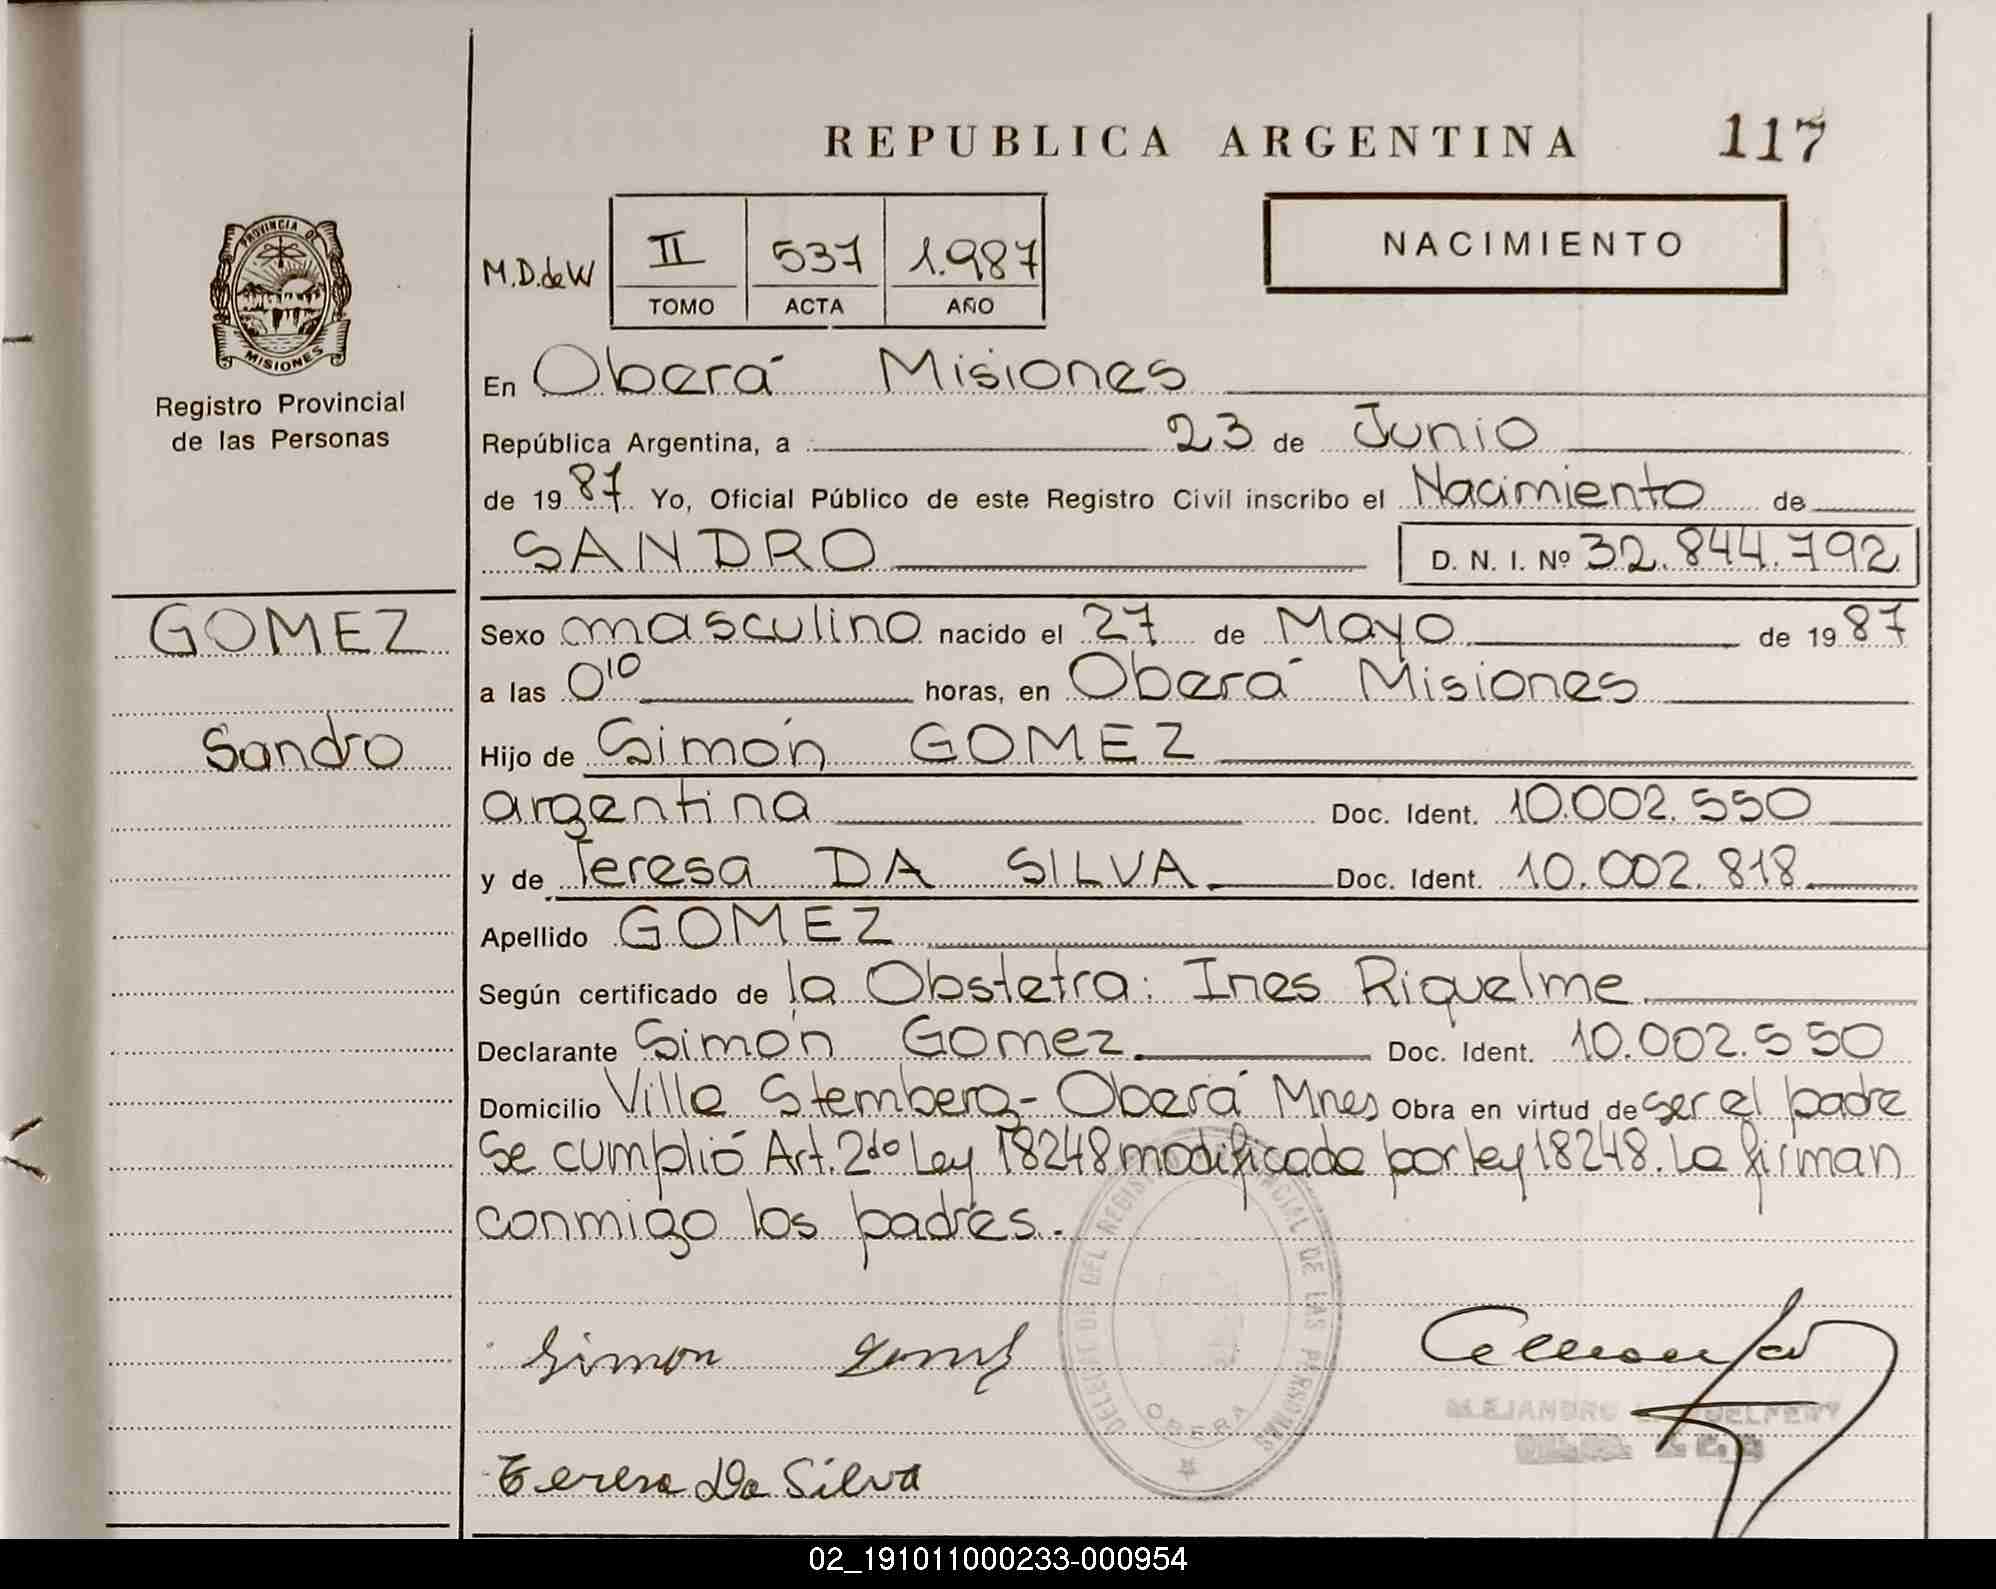 REPUBLICA ARGENTINA 117
PROVINCIA DE
MISIONES
Registro Provincial
de las Personas
M.D.deW
II 537 1.987
TOMO ACTA AÑO
NACIMIENTO
En Oberá Misiones
República Argentina, a 23 de Junio
de 1987 Yo, Oficial Público de este Registro Civil inscribo el Nacimiento de
SANDRO D. N. I. Nº 32.844.792
GOMEZ
Sandro
Sexo masculino nacido el 27 de Mayo de 1987
a las 0'10 horas, en Oberá Misiones
Hijo de Simón GOMEZ
argentina Doc. Ident. 10.002.550
y de Teresa DA SILVA Doc. Ident. 10.002.818
Apellido GOMEZ
Según certificado de la Obstetra: Ines Riquelme
Declarante Simón Gomez Doc. Ident. 10.002.550
Domicilio Villa Stemberg - Oberá Mnes Obra en virtud de ser el padre
Se cumplió Art. 2do Ley 18248 modificada por ley 18248. La firman
conmigo los padres.-
DEL REGISTRO PROVINCIAL DE LAS PERSONAS
OBERA
Simon Gomez
ALEJANDRO
Teresa Da Silva
02_191011000233-000954